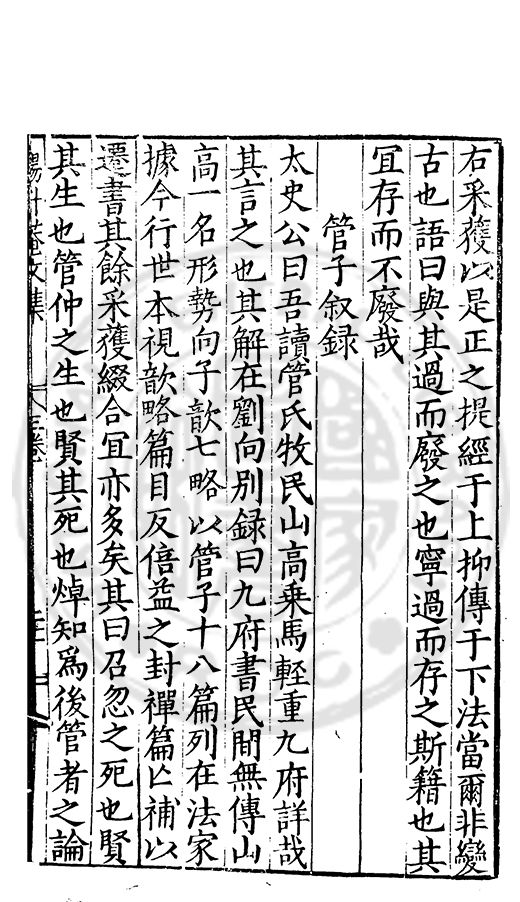 右采獲以是正之提經于上抑傳于下法當爾非變
古也語曰與其過而廢之也寧過而存之斯籍也其
宜存而不廢哉
管子敘録
太史公曰吾讀管氏牧民山高乗馬輕重九府詳哉
其言之也其解在劉向别録曰九府書民間無傳山
高一名形勢向子歆七略以管子十八篇列在法家
據今行世本視歆略篇目反倍益之封禪篇亾補以
遷書其餘采獲綴合宜亦多矣其曰召忽之死也賢
其生也管仲之生也賢其死也焯知爲後管者之論
文集